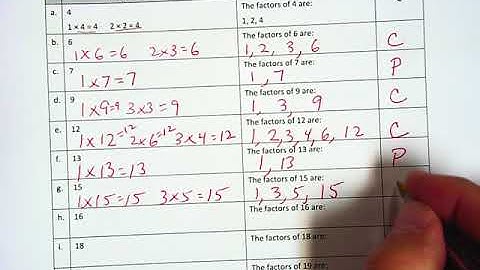 a. 4 The factors of 4 are:
1 x 4 = 4 2 x 2 = 4 1, 2, 4
b. 6 The factors of 6 are:
1 x 6 = 6 2 x 3 = 6 1, 2, 3, 6 C
c. 7 The factors of 7 are:
1 x 7 = 7 1, 7 P
d. 9 The factors of 9 are:
1 x 9 = 9 3 x 3 = 9 1, 3, 9 C
e. 12 The factors of 12 are:
1 x 12 = 12 2 x 6 = 12 3 x 4 = 12 1, 2, 3, 4, 6, 12 C
f. 13 The factors of 13 are:
1 x 13 = 13 1, 13 P
g. 15 The factors of 15 are:
1 x 15 = 15 3 x 5 = 15 1, 3, 5, 15
h. 16 The factors of 16 are:
i. 18 The factors of 18 are: